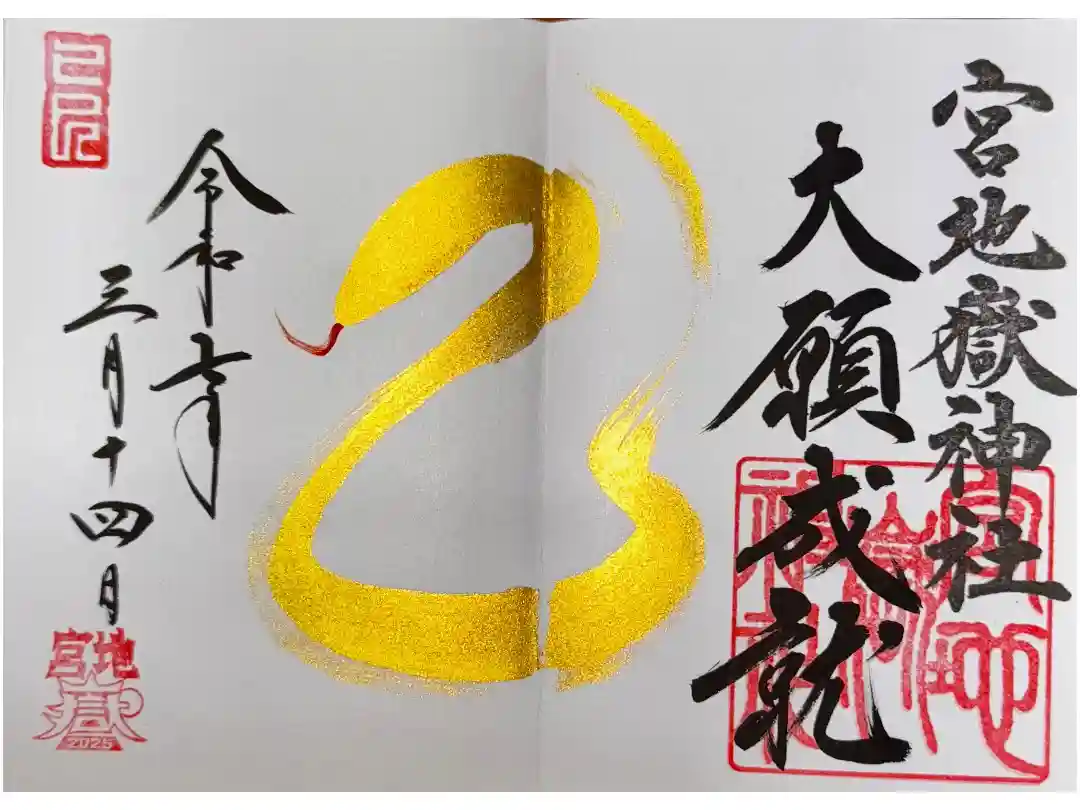 宮地嶽神社
大願成就
宮地
嶽
神社
令和七年
三月十四日
宮地
嶽
2025